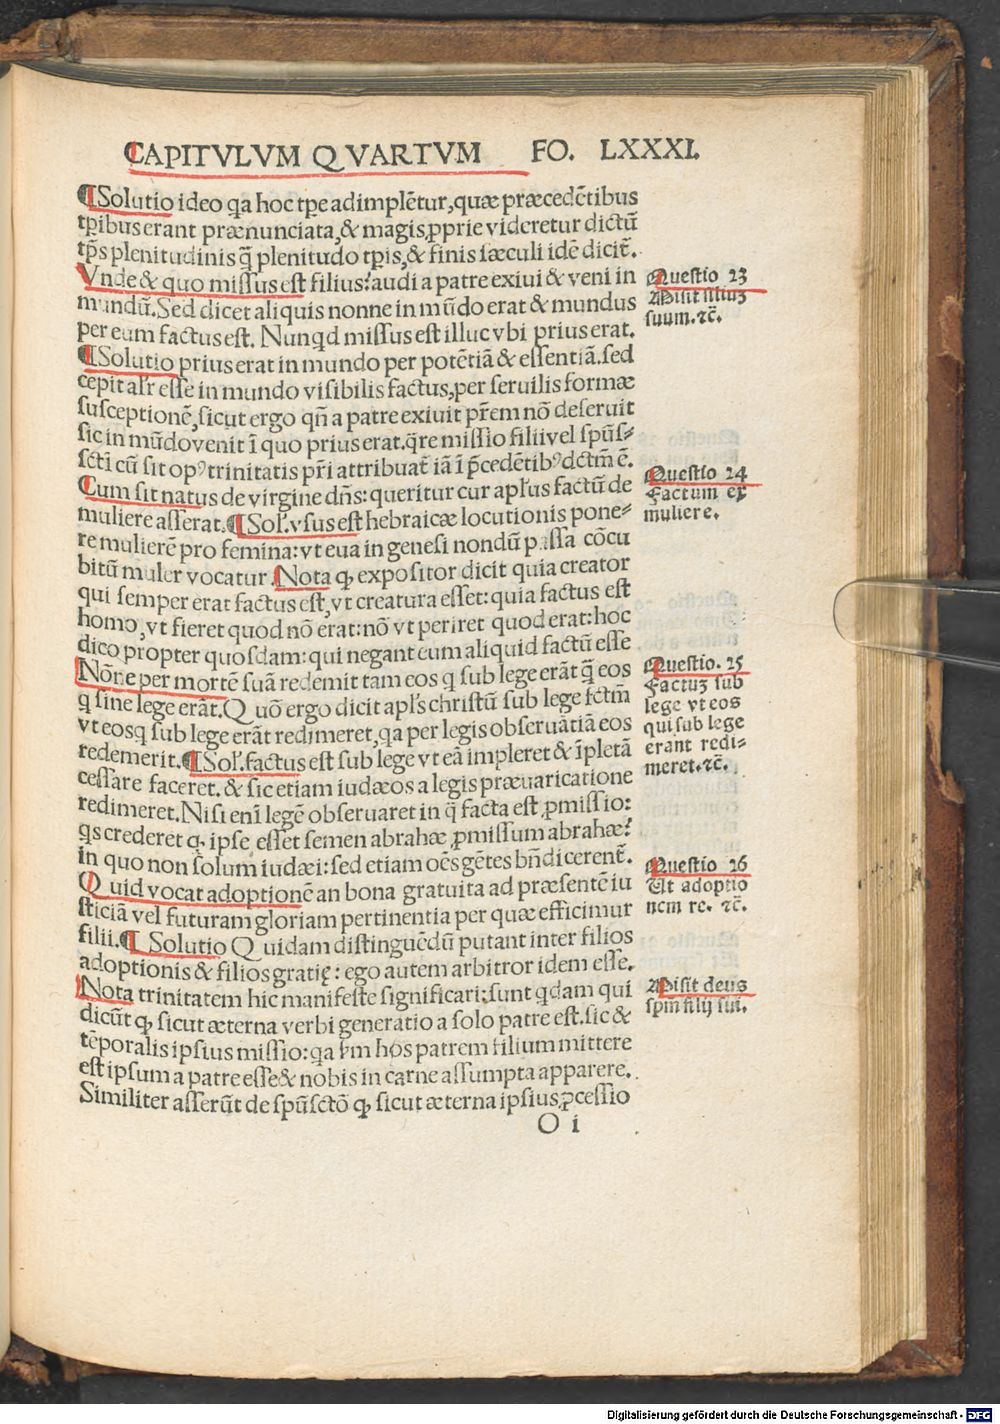 CAPITVLVM QVARTVM FO. LXXXI.
¶Solutio ideo qa hoc tp̄e adimplētur,quæ præcedētibus
tp̄ibus erant prænunciata,& magis ꝓprie videretur dictū
tp̄s plenitudinis q̄ plenitudo tp̄is,& finis sæculi idē dicit̄.
Vnde & quo missus est filius?audi a patre exiui & veni in
mundū.Sed dicet aliquis nonne in mūdo erat & mundus
per eum factus est. Nunqd missus est illuc vbi prius erat.
¶Solutio prius erat in mundo per potētiā & essentiā.sed
cepit alr̄ esse in mundo visibilis factus,per seruilis formæ
susceptionē,sicut ergo qn̄ a patre exiuit pr̄em nō deseruit
sic in mūdo venit ī quo prius erat.q̄re missio filii vel spūs-
scti cū sit opꝰ trinitatis pr̄i attribuat̄ iā ī p̄cedētibꝰ dctm̄ ē.
Cum sit natus de virgine dn̄s: queritur cur apl̄us factū de
muliere asserat.¶Sol̄.vsus est hebraicæ locutionis pone-
re mulierē pro femina:vt eua in genesi nondū passa cōcu
bitū mulier vocatur.Nota ꝙ expositor dicit quia creator
qui semper erat factus est,vt creatura esset:quia factus est
homo,vt fieret quod nō erat:nō vt periret quod erat:hoc
dico propter quosdam:qui negant eum aliquid factū esse
Nōne per mortē suā redemit tam eos q sub lege erāt q̄ eos
q sine lege erāt.Quō ergo dicit apl̄s christū sub lege fctm̄
vt eos q sub lege erāt redimeret,qa per legis obseruātiā eos
redemerit.¶Sol̄.factus est sub lege vt eā impleret & īpletā
cessare faceret. & sic etiam iudæos a legis præuaricatione
redimeret.Nisi eni legē obseruaret in q̄ facta est ꝓmissio:
qs crederet ꝙ ipse esset semen abrahæ ꝓmissum abrahæ?
in quo non solum iudæi:sed etiam oēs gētes bn̄dicerent̄.
Quid vocat adoptionē an bona gratuita ad præsentē iu
sticiā vel futuram gloriam pertinentia per quæ efficimur
filii.¶ Solutio Quidam distinguēdū putant inter filios
adoptionis & filios gratię: ego autem arbitror idem esse.
Nota trinitatem hic manifeste significari:sunt qdam qui
dicūt ꝙ sicut æterna verbi generatio a solo patre est.sic &
tēporalis ipsius missio:qa sm̄ hos patrem filium mittere
est ipsum a patre esse & nobis in carne assumpta apparere.
Similiter asserūt de spūsctō ꝙ sicut æterna ipsius ꝓcessio
O i
Questio 23
Misit filiuȝ
suum.ꝛc̄.
Questio 24
Factum ex
muliere.
Questio. 25
Factuȝ sub
lege vt eos
qui sub lege
erant redi-
meret.ꝛc̄.
Questio 26
Ut adoptio
nem re. ꝛc̄.
Misit deus
spm̄ filij sui.
Digitalisierung gefördert durch die Deutsche Forschungsgemeinschaft - DFG